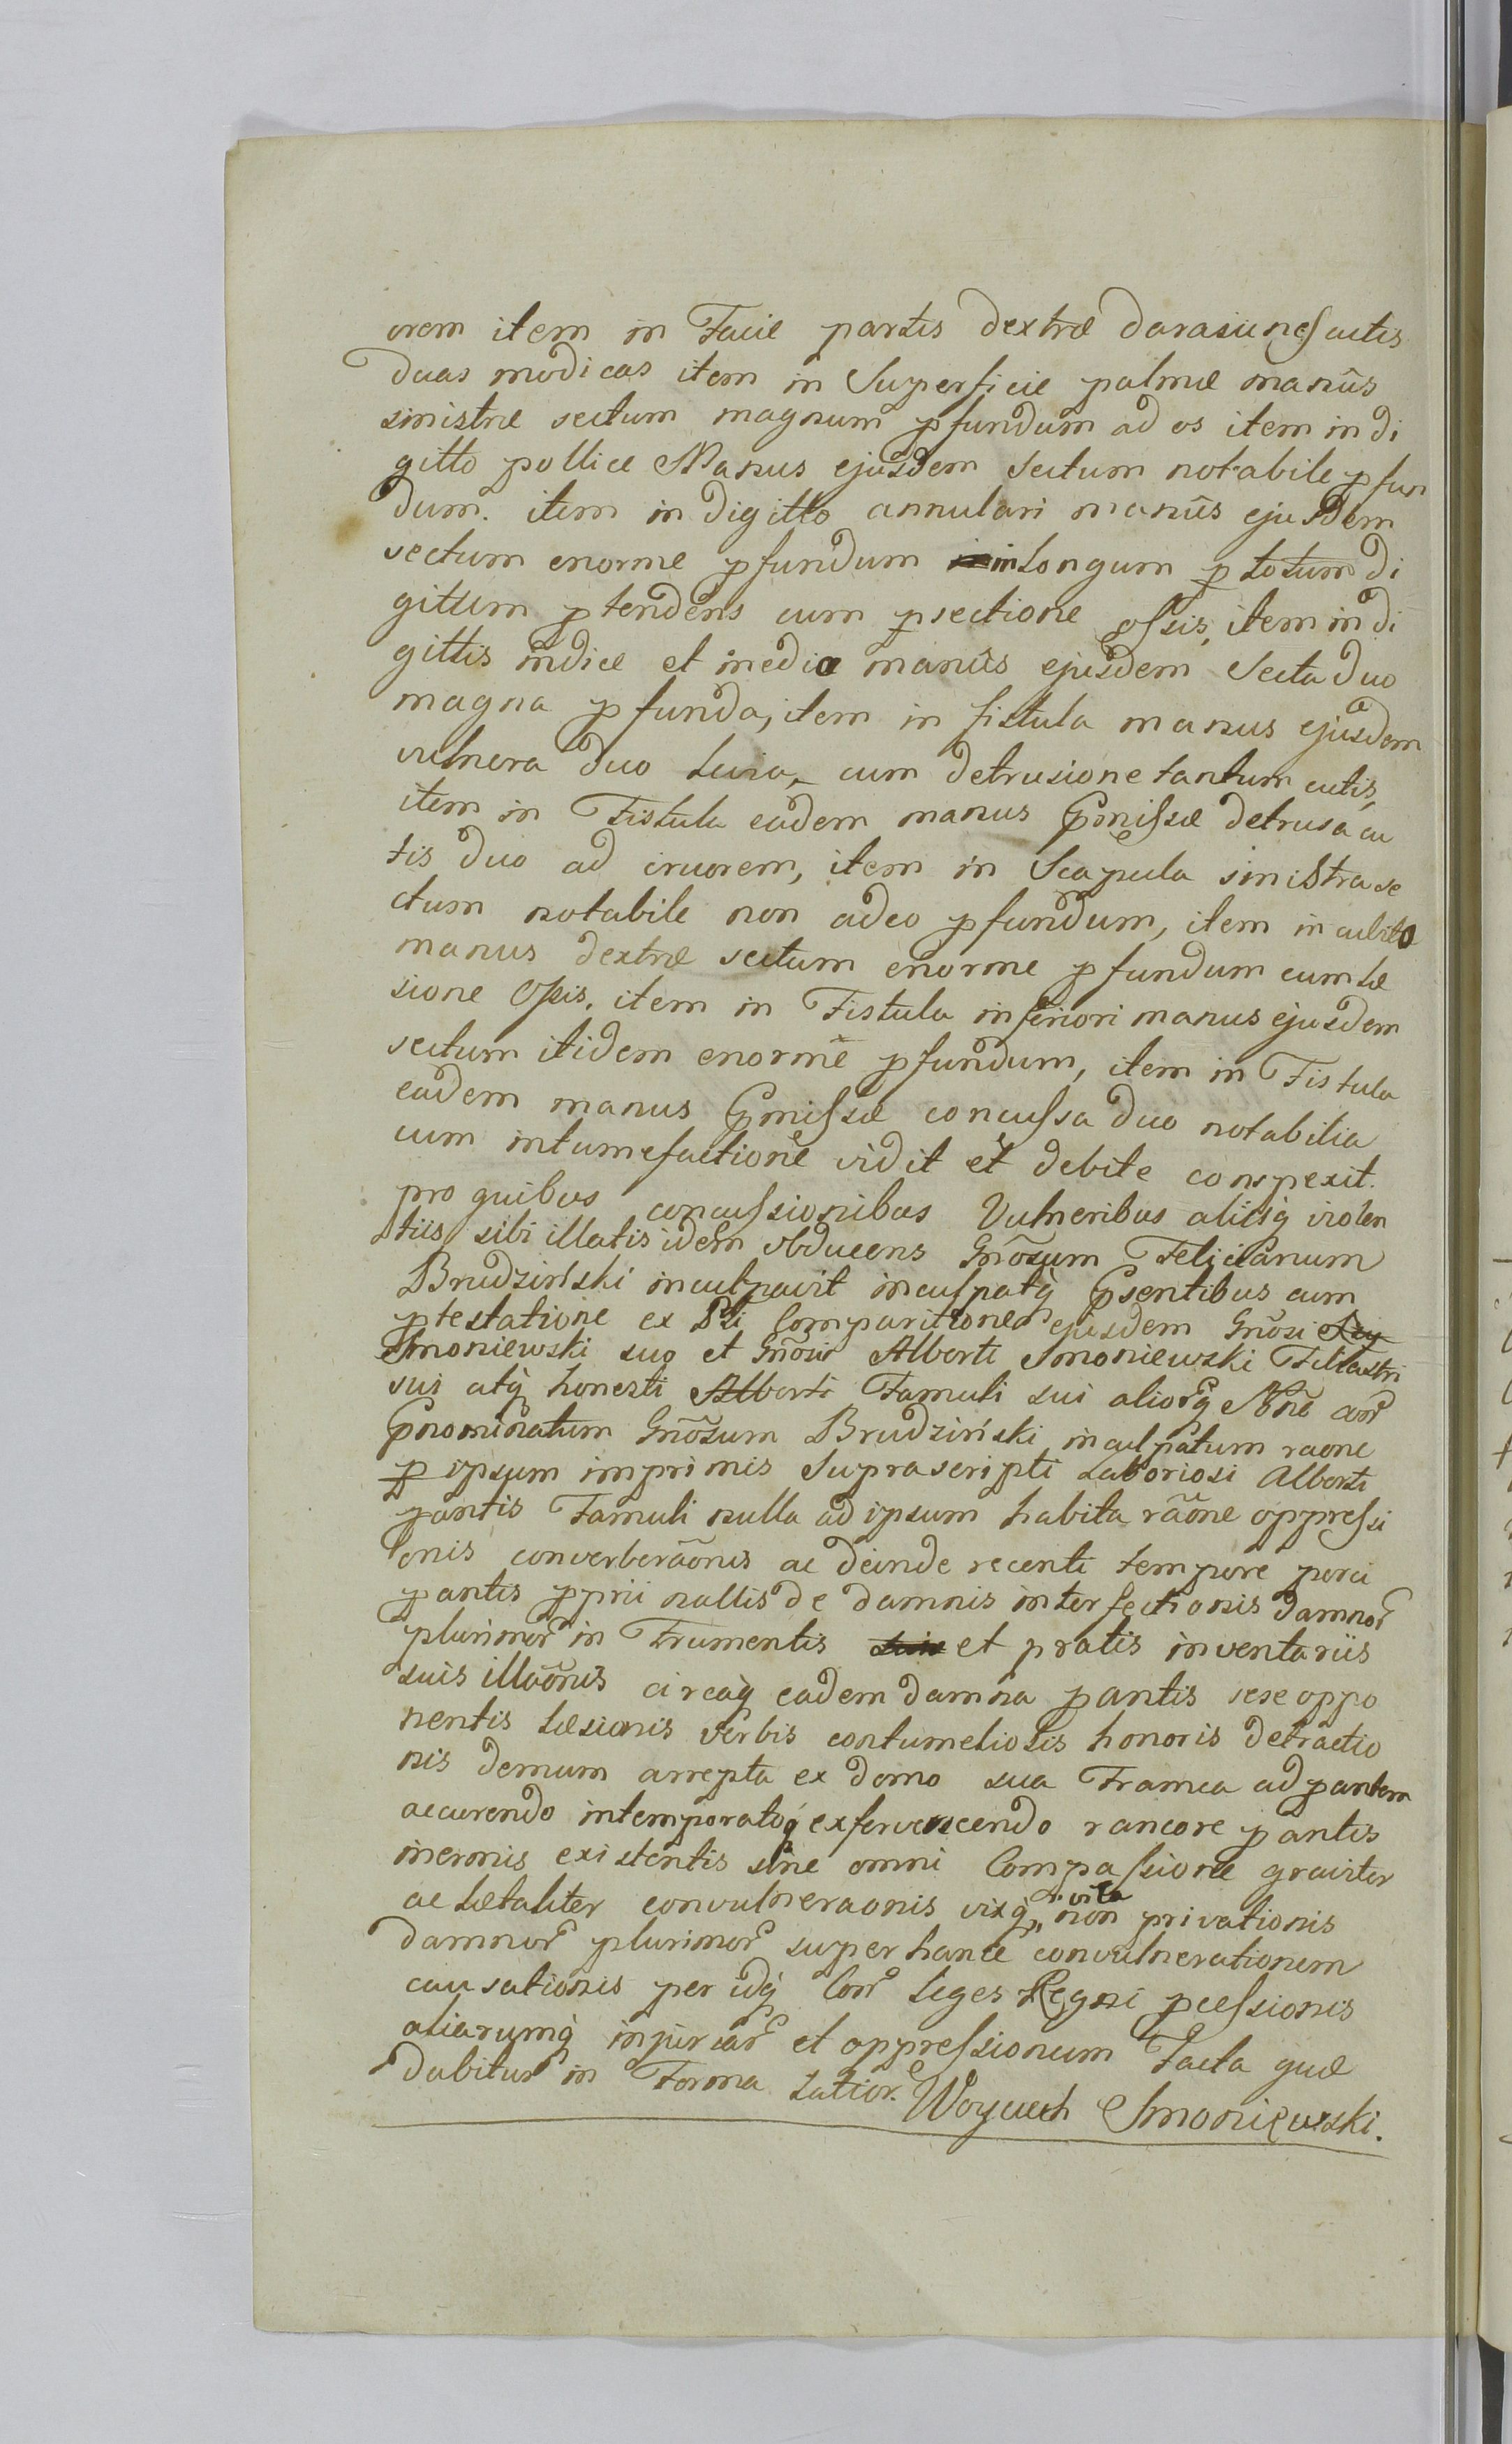 orem item in Facie partis dextræ darasiines cutis
duas modicas item in Superficie palmæ manûs
sinistræ sectum magnum pfundum ad os item in di
gitto pollice Manus ejusdem sectum notabile pfun
dum. item in digitto annulari manûs ejusdem
sectum enorme pfundum in longum p totum di
gitum ptendens cum psectione ossis, item in di
gittis indice et medio manûs ejusdem Secta duo
magna pfunda, item in fistula manus ejusdem
vulnera duo levia, cum detrusione tantum cutis,
item in Fistula eadem manus Pmissæ detrusa cu
tis duo ad cruorem, item in Scapula sinistra se
ctum notabile non adeo pfundum, item in cubito
manus dextræ sectum enorme pfundum cum læ
sione ossis, item in Fistula inferiori manus ejusdem
sectum itidem enorme pfundum, item in Fistula
eadem manus Pmissæ concussa duo notabilia
cum intumefactione vidit et debite conspexit.
pro quibus concussionibus Vulneribus aliisq violen
tiis sibi illatis idem obducens Gnõsum Felicianum
Brudziński inculpavit inculpatq Psentibus cum
ptestatione ex Pti Comparitione ejusdem Gnõsi
Smoniewski suo et Gnõsi Alberti Smoniewski Filiastri
sui atq honesti Alberti Famuli sui aliorq Nõne con
Pnominatum Gnõsum Brudziński inculpatum raone
p ipsum imprimis Suprascripti Laboriosi Alberti
pantis Famuli nulla ad ipsum habita rãone oppressi
onis converberãonis ac deinde recenti tempore porci
pantis pprii nullis de damnis interfectionis damnor
plurimor in Frumentis et pratis inventariis
suis illãonis circaq eadem damna pantis sese oppo
nentis læsionis verbis contumeliosis honoris detractio
nis demum arrepta ex domo sua Framea ad pantem
accurendo intemperateq exfervescendo rancore pantis
inermis existentis sine omni Compassione graviter
ac lætaliter convulneraonis vixq vita non privationis
damnor plurimor super hance convulnerationem
causationis per idq Con Leges Regni pcessionis
aliarumq injuriar et oppressionum Facta quæ
dabitur in Forma Latior. Woyciech Smoniewski.